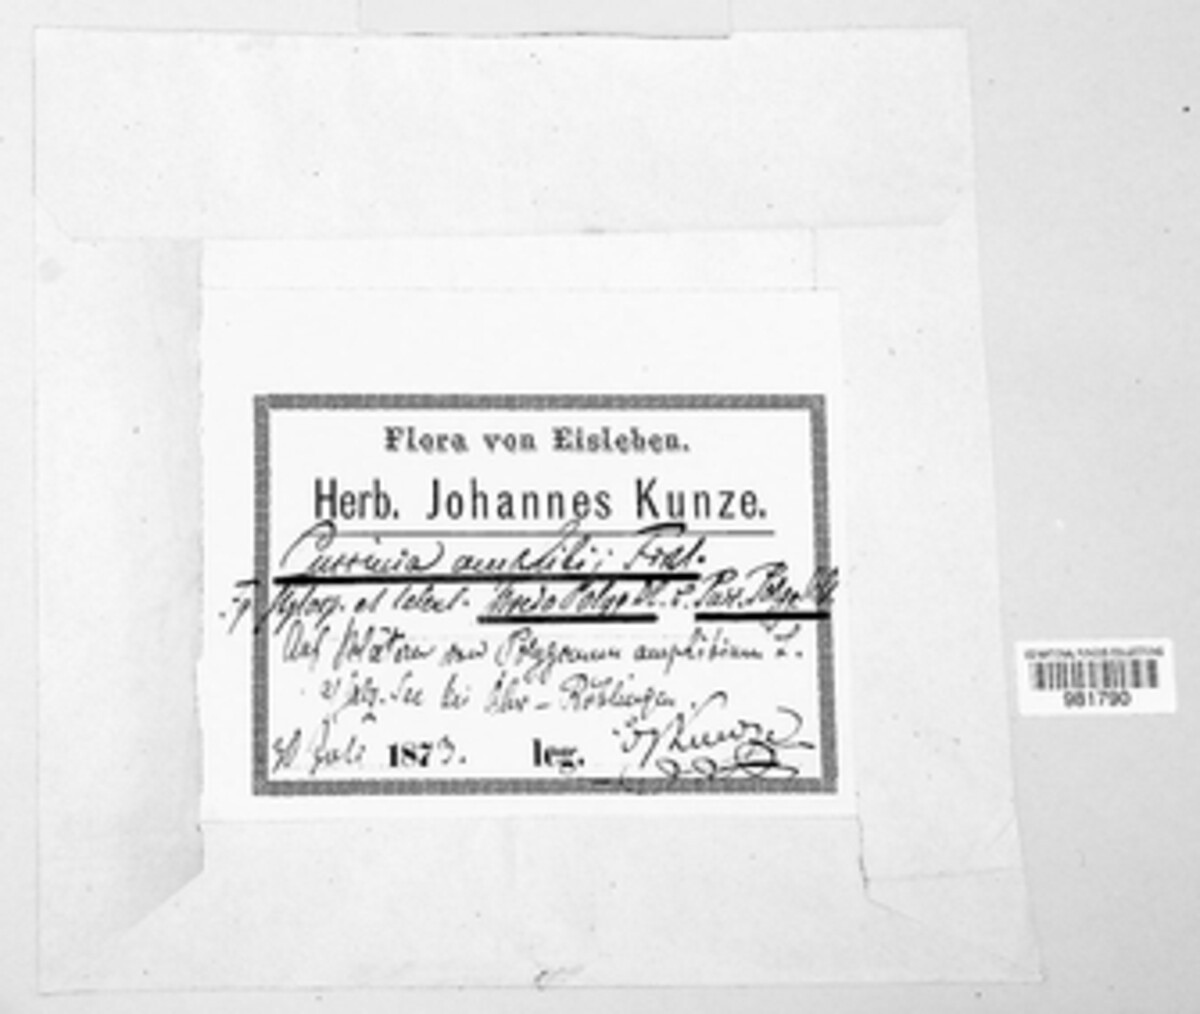 Flora von Eisleben.
Herb. Johannes Kunze.
Puccinia amphibii Fckl.
et teleut. Uredo Polyg. Pucc. Polyg.
Auf Blättern von Polygonum amphibium
See bei Ober-Röblingen.
Juli 1873. leg. J Kunze
US NATIONAL FUNGUS COLLECTIONS
981790